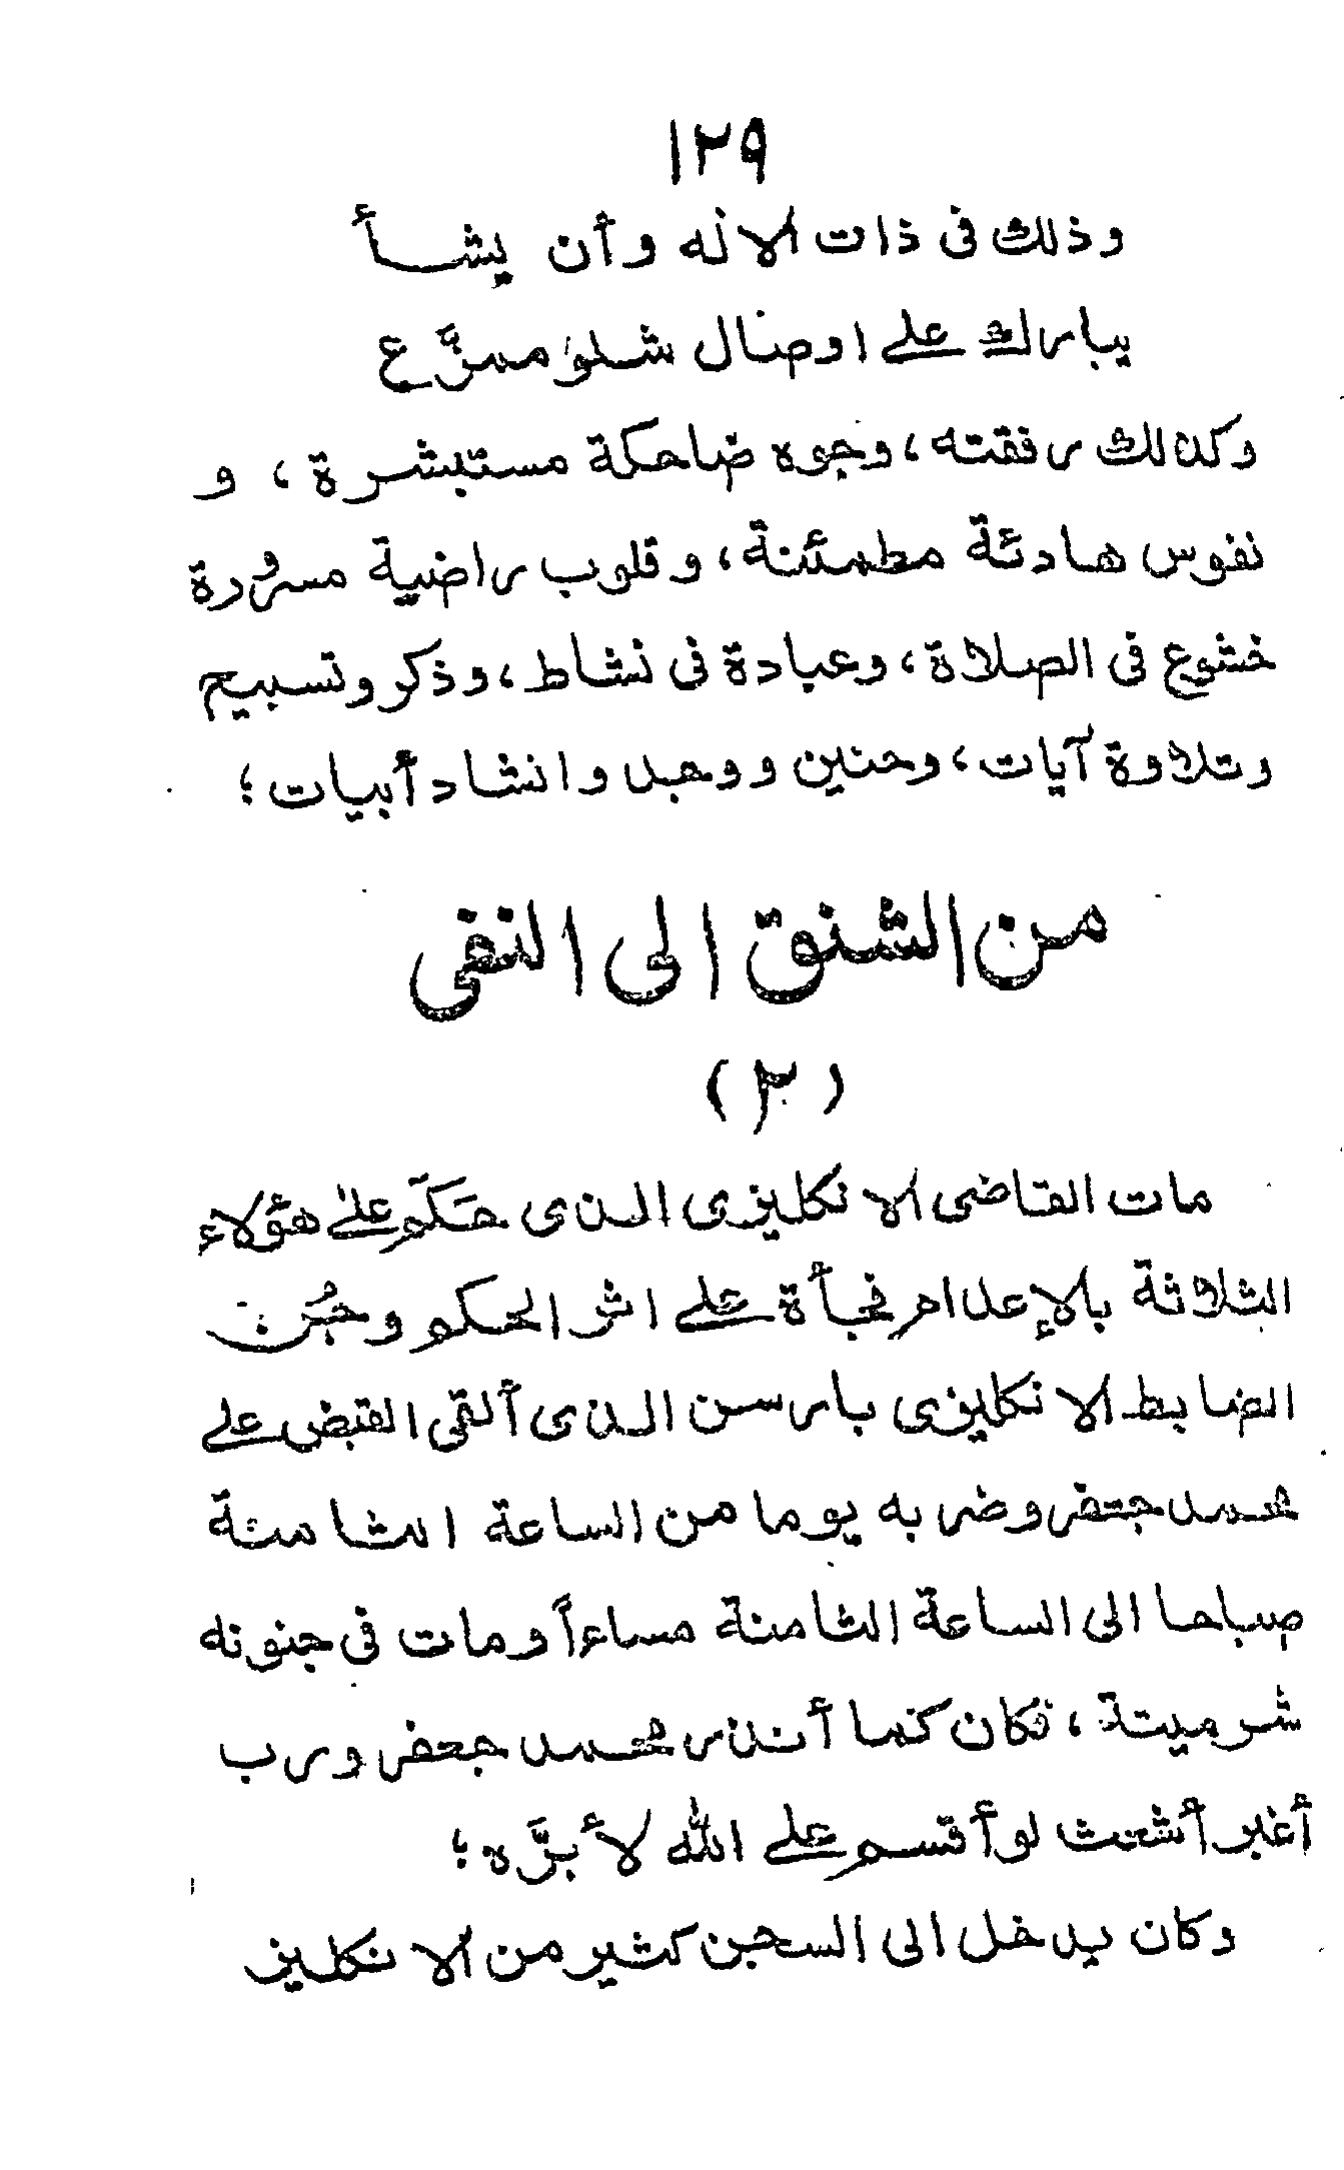 ١٢٩
وذلك في ذات الاله وأن يشــأ
يبارك على اوصال شلو ممزَّع
وكذالك رفقته، وجوه ضاحكة مستبشرة، و
نفوس هادئة مطمئنة، وقلوب راضية مسرورة
خشوع في الصلاة، وعبادة في نشاط، وذكر وتسبيح
وتلاوة آيات، وحنين ووجد وانشاد أبيات؛
من الشنق الى النفى
(٣)
مات القاضى الانكليزى الذى حَكَم على هؤلاء
الثلاثة بالإعدام فجأة على اثر الحكم وجُن
الضابط الانكليزى بارسن الذى ألقى القبض على
محمد جعفر وضربه يوما من الساعة الثامنة
صباحا الى الساعة الثامنة مساءاً ومات في جنونه
شر ميتة، فكان كما أنذر محمد جعفر ورب
أغبر أشعث لو أقسم على الله لأبرَّه؛
وكان يدخل الى السجن كثير من الانكليز